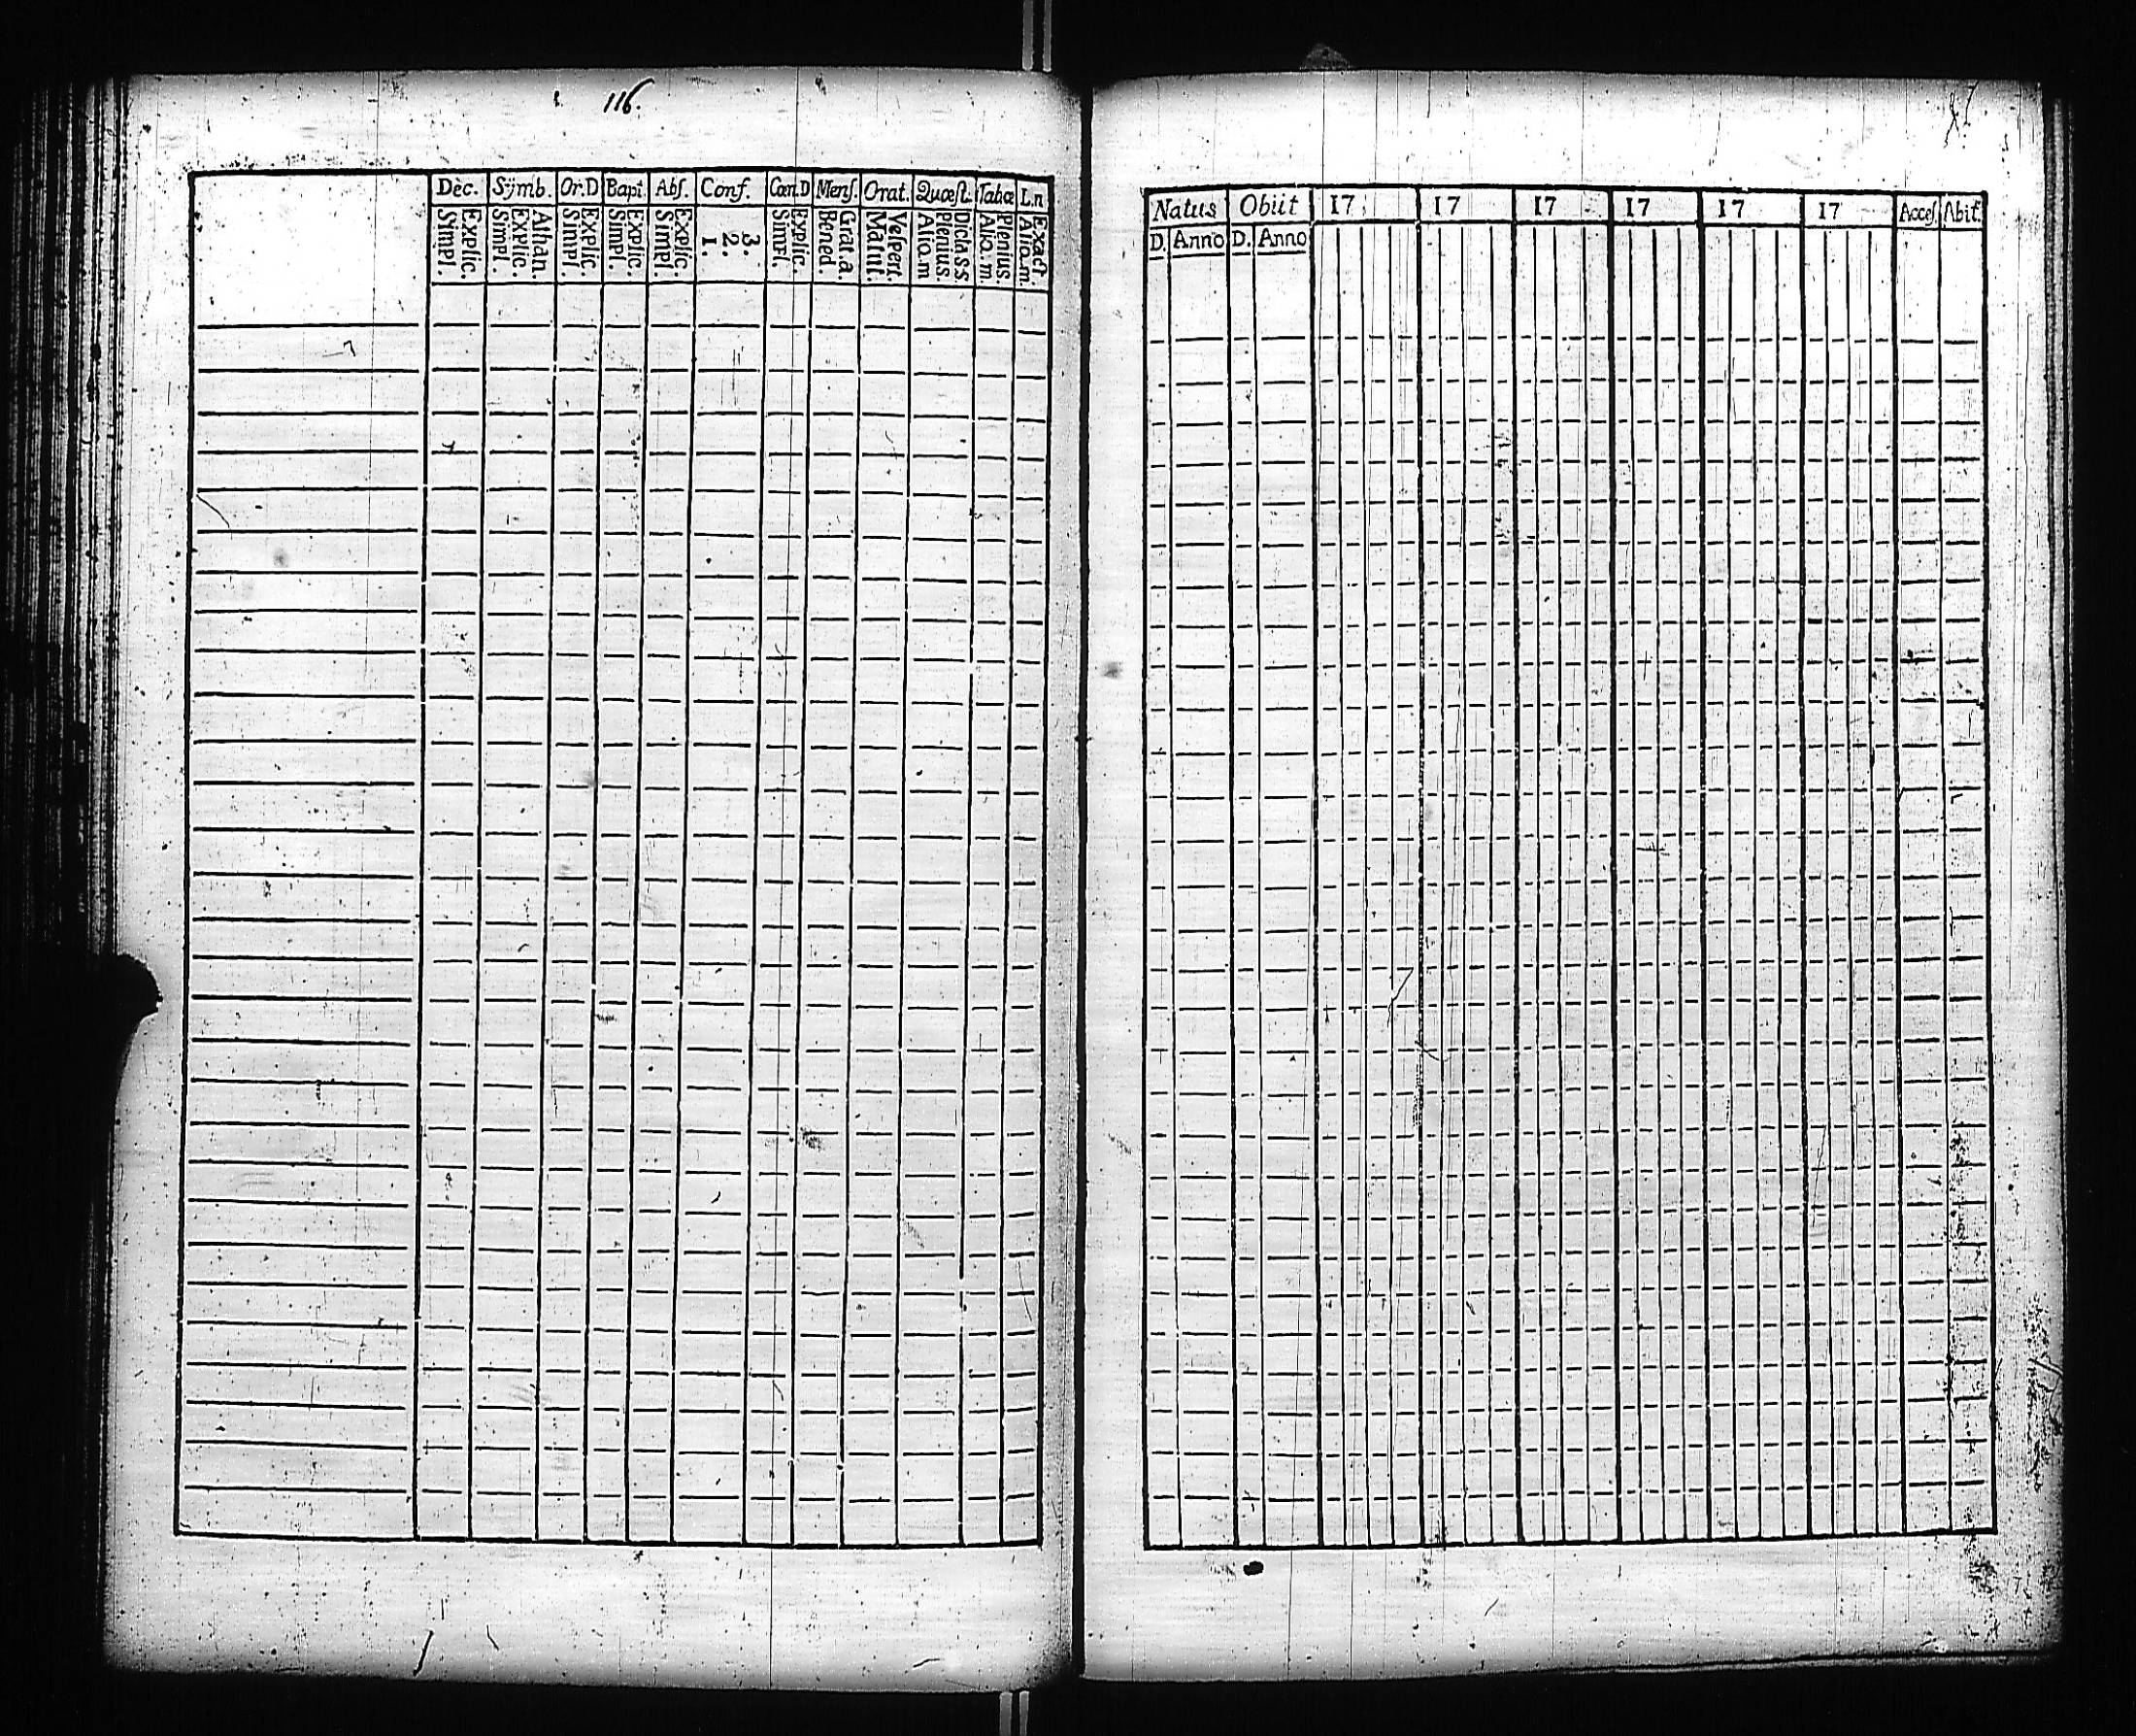 116.
Dec. Sÿmb. Or.D Bapt. Abſ. Conf. Cœn.D Menſ. Orat. Quæſt. Tabæ L.n
Explic. Simpl. Athan. Explic. Simpl. Explic. Simpl. Explic. Simpl. Explic. Simpl. 3. 2. 1. Explic. Simpl. Grat.a. Bened. Veſpert. Matut. Dicta.s.s. Plenius. Alio.m Plenius. Alio.m. Exact. Alio.m.
Natus Obiit 17 17 17 17 17 17 Acceſ. Abit.
D. Anno D. Anno